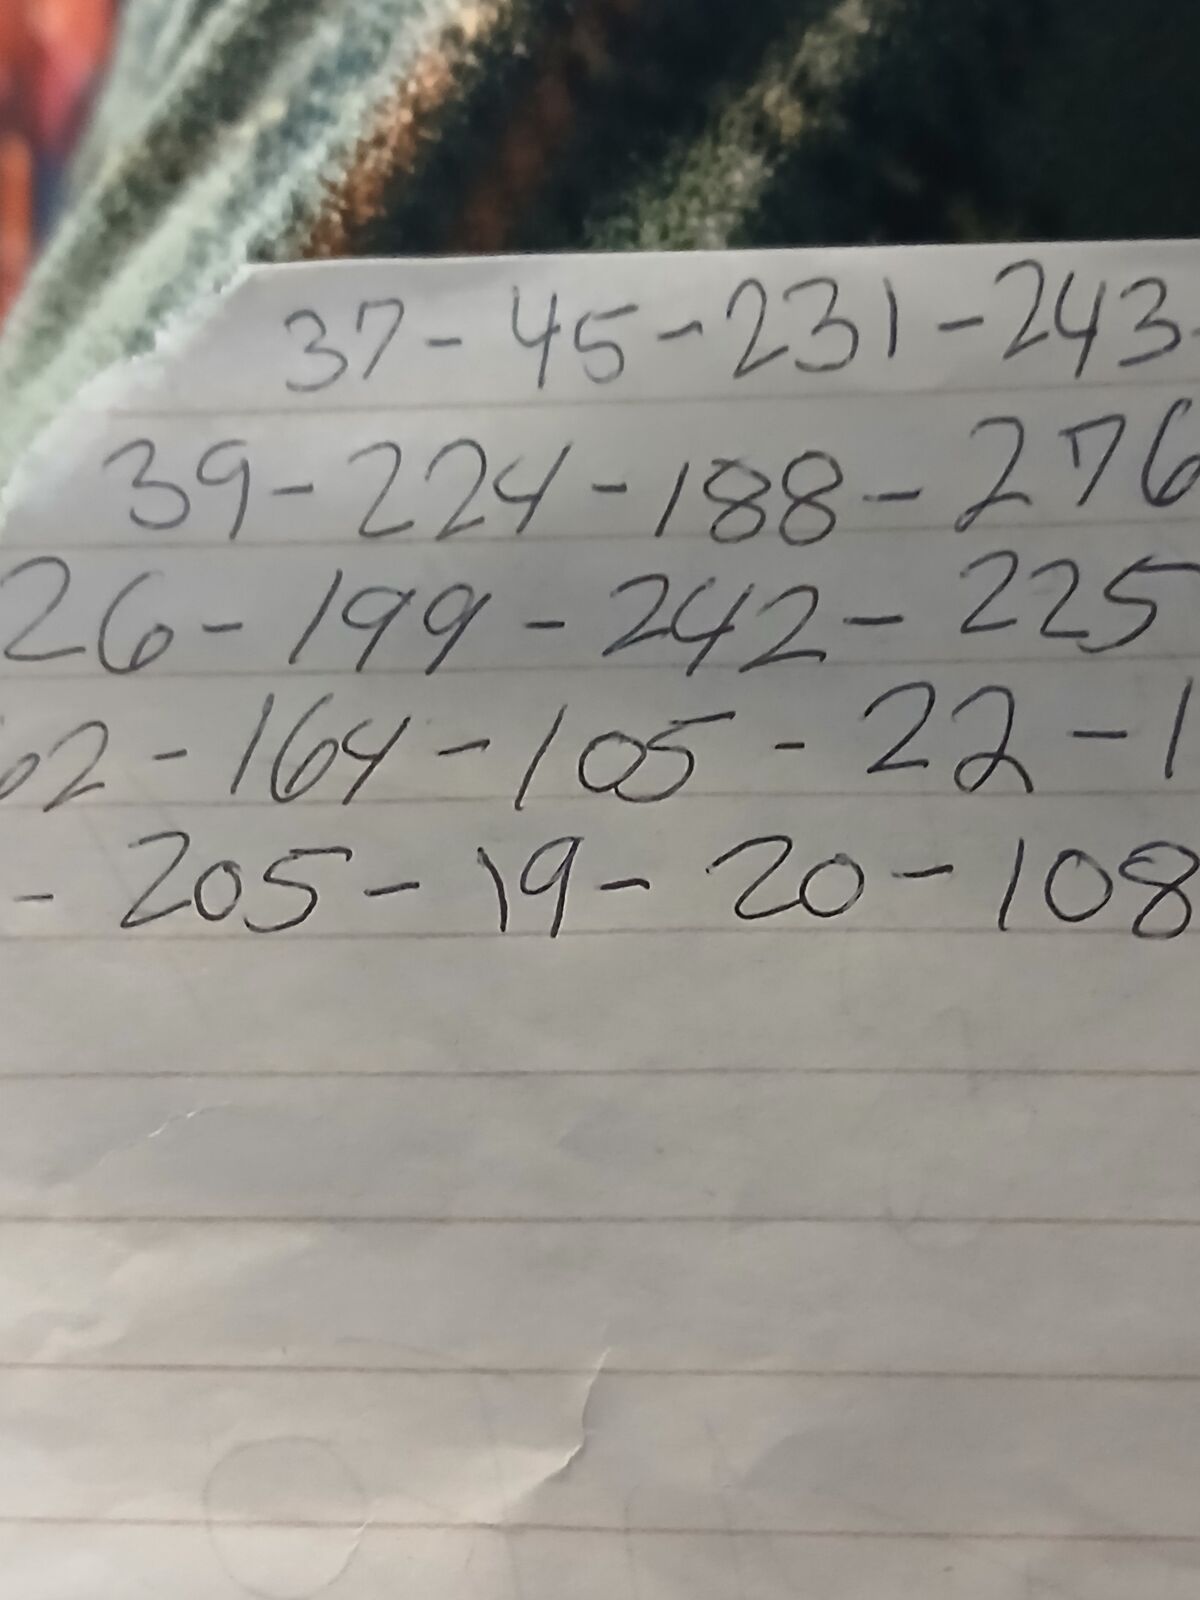 37 - 45 - 231 - 243 -
39 - 224 - 188 - 276
26 - 199 - 242 - 225
02 - 164 - 105 - 22 - 1
- 205 - 19 - 20 - 108